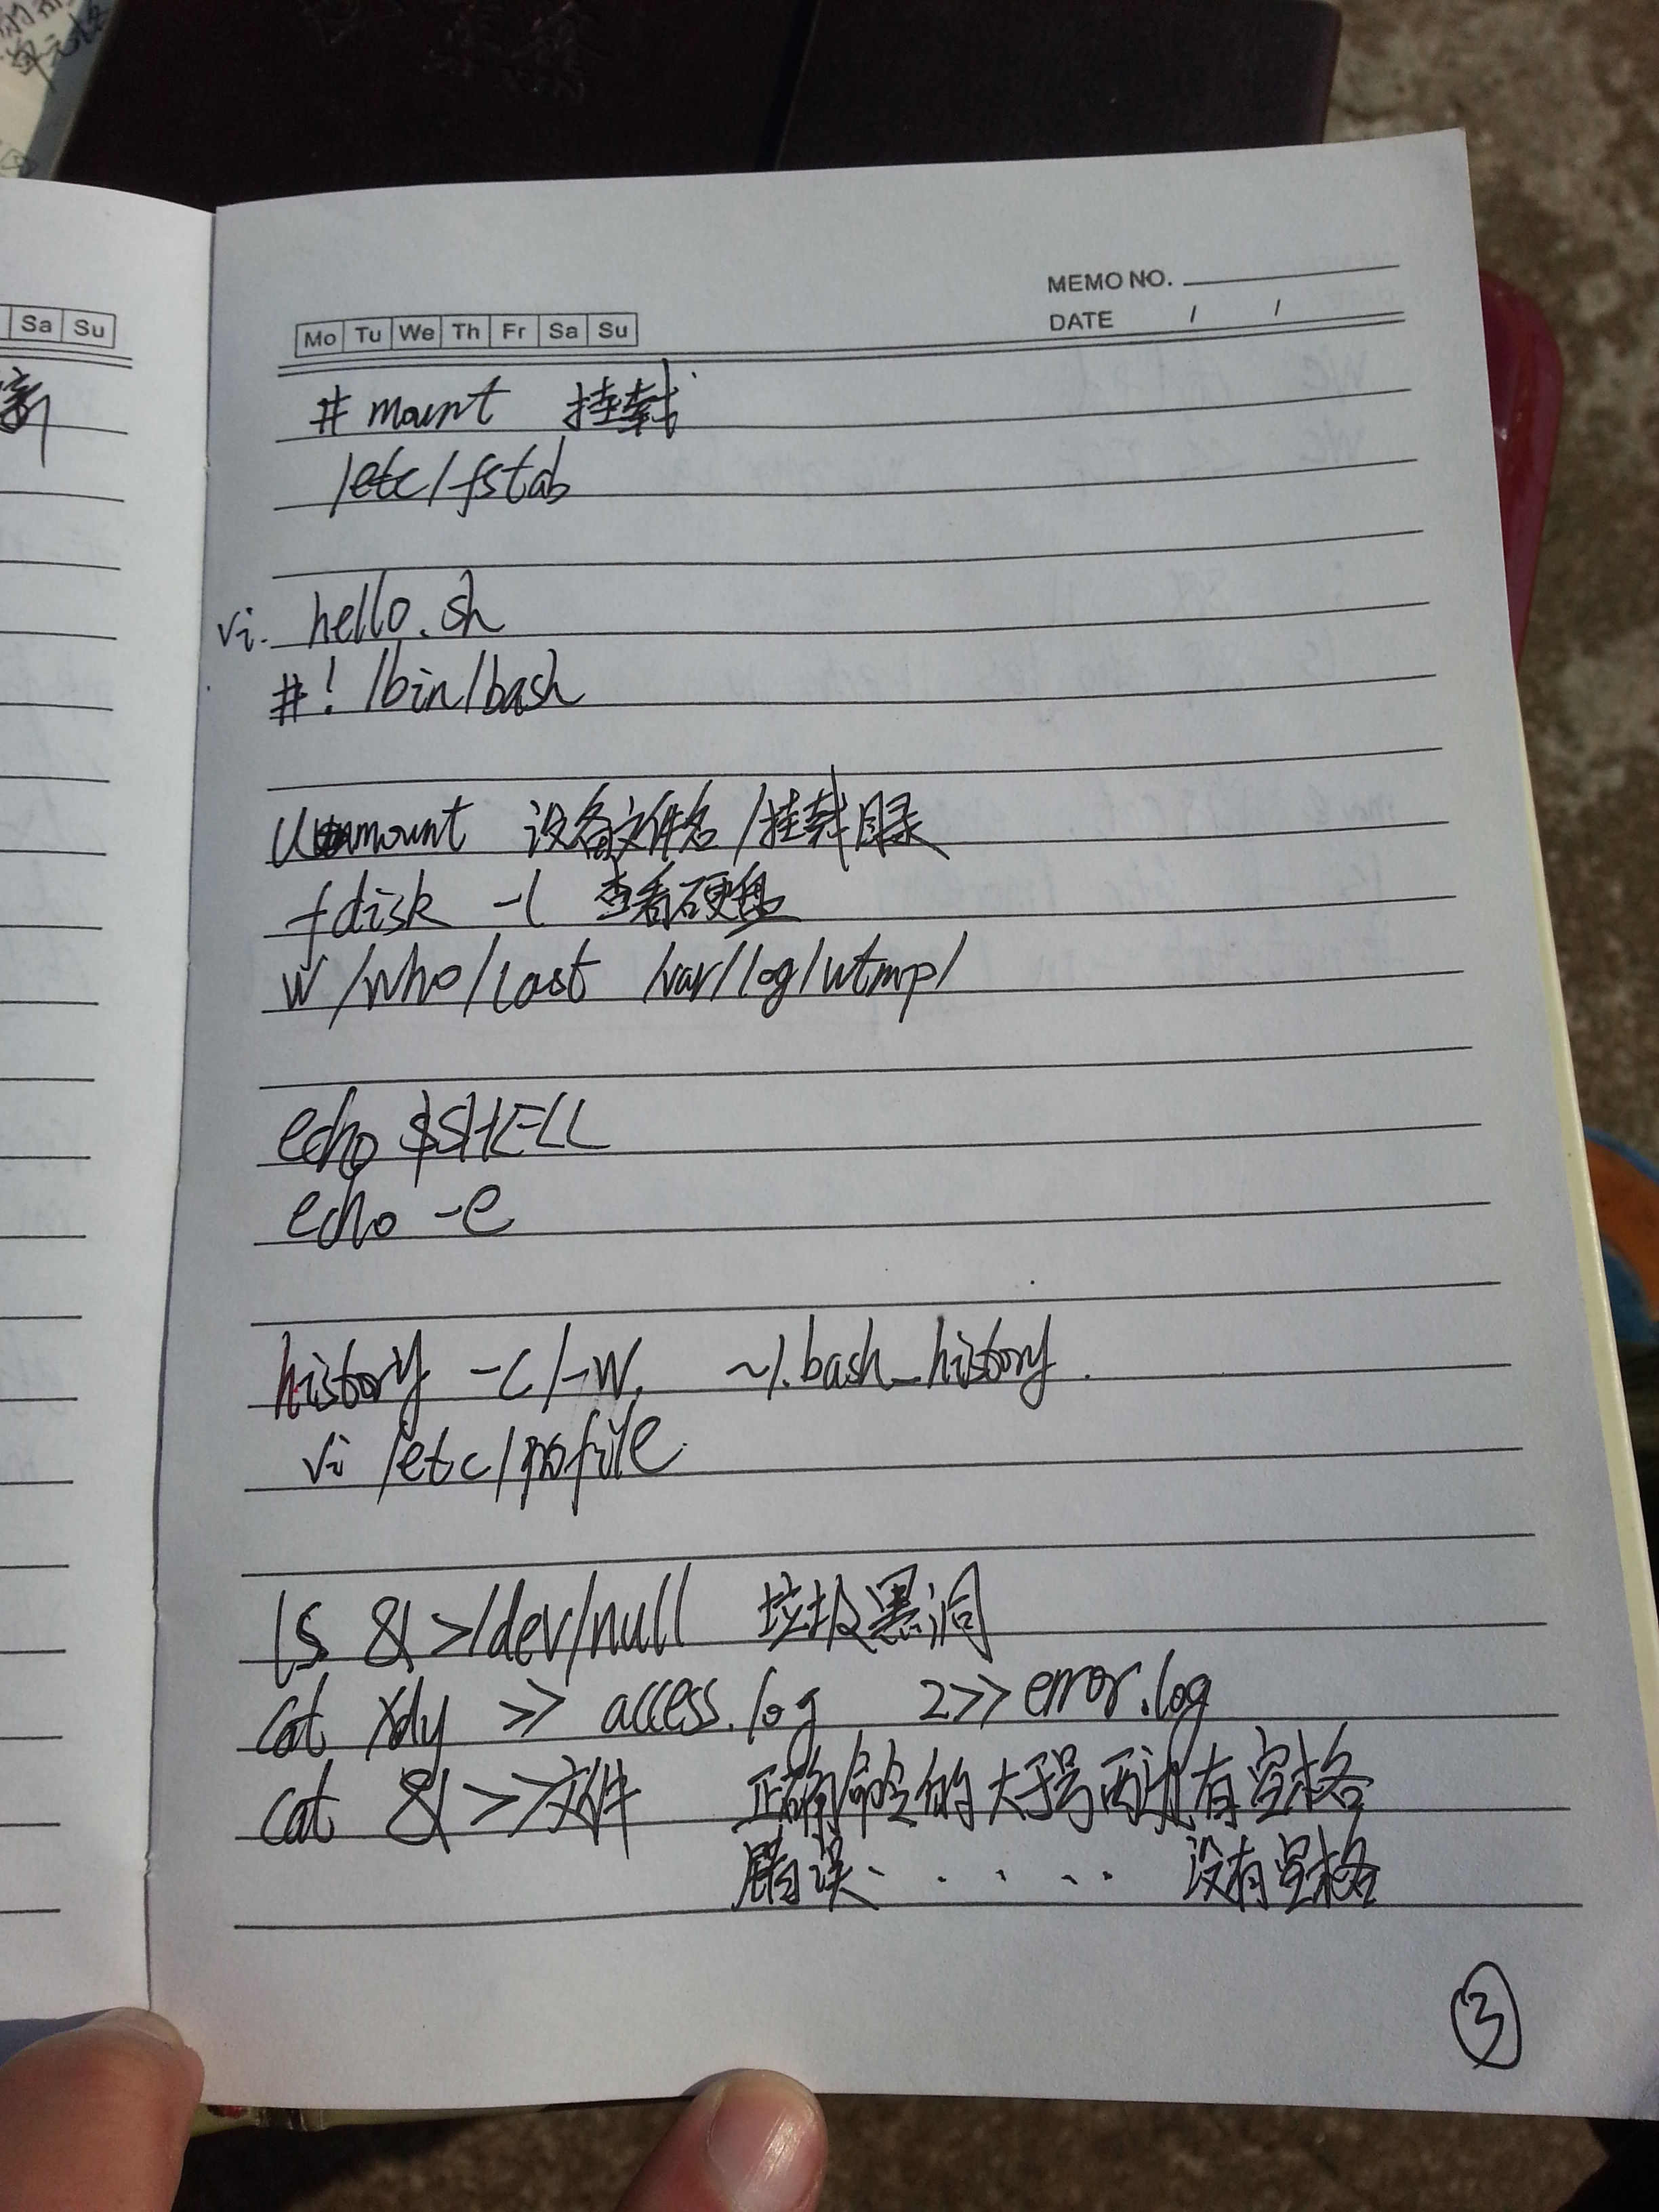 单元格
Sa Su
新
MEMO NO.
DATE / /
Mo Tu We Th Fr Sa Su
# mount 挂载
/etc/fstab
vi. hello.sh
#! /bin/bash
umount 设备文件名/挂载目录
fdisk -l 查看硬盘
w/who/last /var/log/wtmp/
echo $SHELL
echo -e
history -c/-w, ~/.bash_history.
vi /etc/profile
ls &>/dev/null 垃圾黑洞
cat xdy >> access.log 2>>error.log
cat &>>文件 正确命令的大于号两边有空格
错误、 . . 、.. 没有空格
③